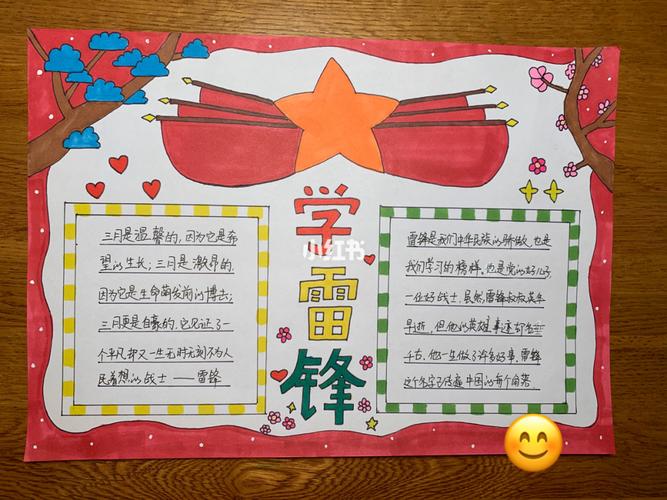 学
雷
锋
小红书
三月是温馨的,因为它是希
望的生长;三月是激昂的,
因为它是生命萌发前的搏击;
三月更是自豪的,它见证了一
个平凡却又一生无时无刻不为人
民着想的战士——雷锋
雷锋是我们中华民族的骄傲,也是
我们学习的榜样,也是党的好儿子,
一位好战士,虽然,雷锋叔叔英年
早逝,但他的英雄事迹却名垂
千古,他一生做了许多好事,雷锋
这个名字已传遍中国的每个角落.